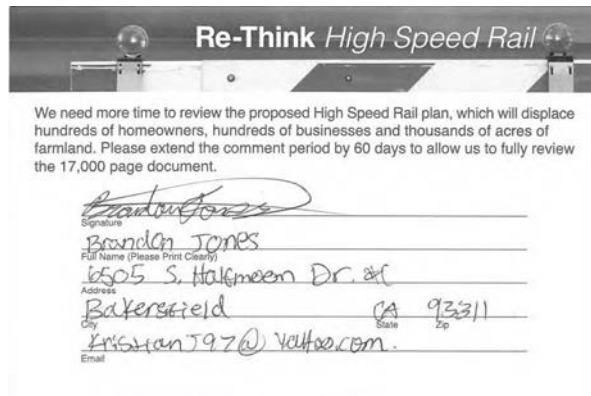 Re-Think High Speed Rail
We need more time to review the proposed High Speed Rail plan, which will displace
hundreds of homeowners, hundreds of businesses and thousands of acres of
farmland. Please extend the comment period by 60 days to allow us to fully review
the 17,000 page document.
Brandon Jones
Signature
Brandon Jones
Full Name (Please Print Clearly)
6505 S. Halfmoon Dr.
Address
Bakersfield CA 93311
City State Zip
KristianJ97@yahoo.com.
Email